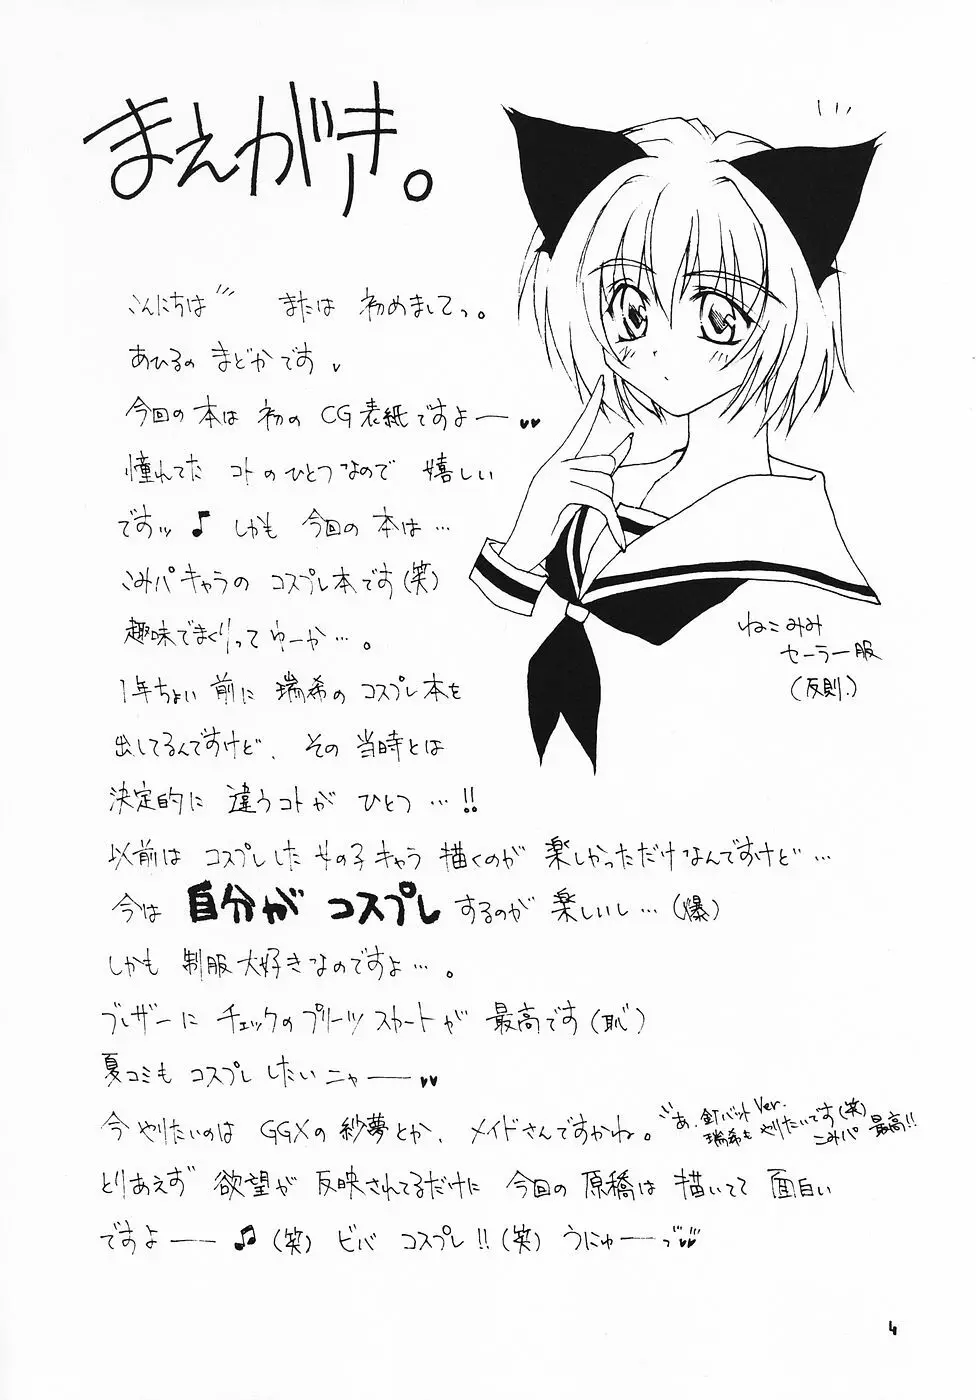 まえがき。
こんにちは゛ または 初めましてっ。
あひるの まどかです
今回の 本は 初の CG表紙ですよ――♥♥
憧れてた コトの ひとつなので 嬉しい
ですッ ♪ しかも 今回の 本は…
こみパキャラの コスプレ本です(笑)
趣味でまくりって ゆーか…。
1年ちょい 前に 瑞希の コスプレ本を
出してるんですけど、その 当時とは
決定的に 違うコトが ひとつ…!!
以前は コスプレした 女の子キャラ 描くのが 楽しかっただけなんですけど…
今は 自分が コスプレ するのが 楽しいし…(爆)
しかも 制服大好きなのですよ…。
ブレザーに チェックの プリーツ スカートが 最高です(恥)
夏コミも コスプレ したいニャ――♥♥
今 やりたいのは GGXの 紗夢とか、メイドさんですかね。
あ、釘バットVer.
瑞希も やりたいです(笑)
こみパ 最高!!
とりあえず 欲望が 反映されてるだけに 今回の 原稿は 描いてて 面白い
ですよ―― ♫ (笑) ビバ コスプレ!! (笑) うにゅ――っ♥♥
ねこみみ
セーラー服
(反則)
4